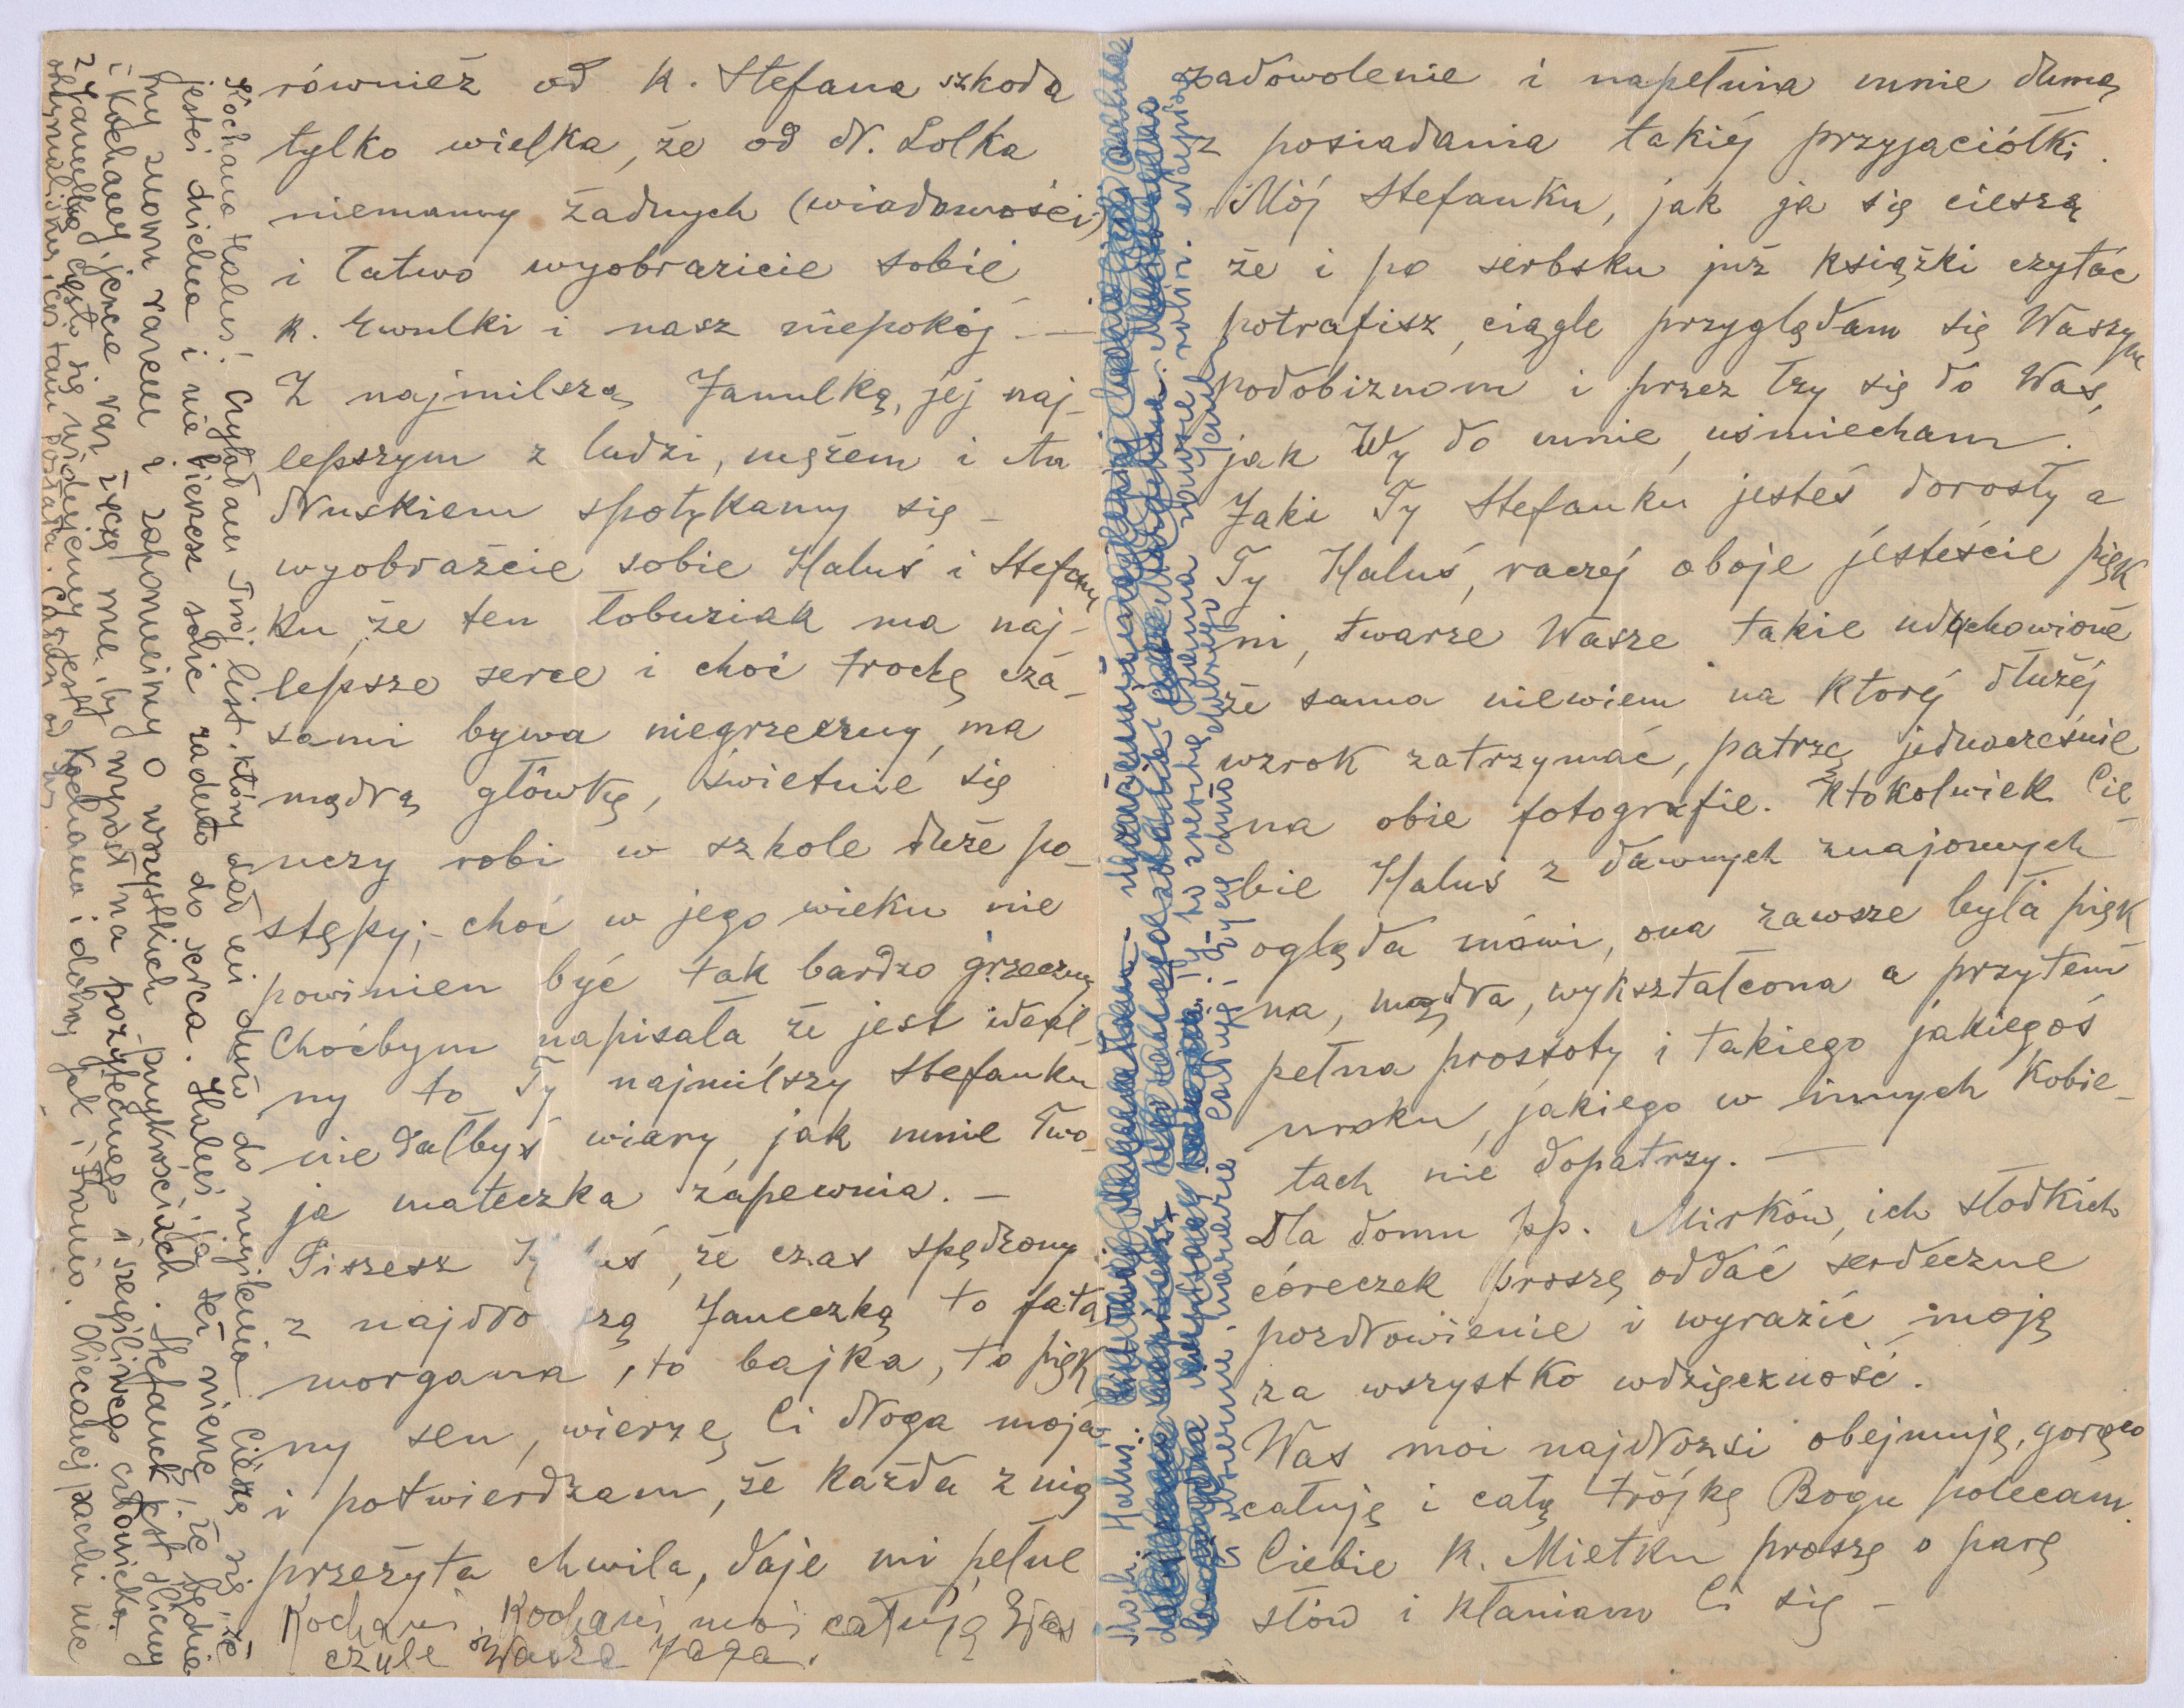 również od K. Stefana szkoda
tylko wielka, że od N. Lolka
niemamy żadnych (wiadomości)
i łatwo wyobrazicie sobie
K. Ewulki i nasz niepokój. —
Z najmilszą Janulką, jej naj-
lepszym z ludzi, mężem i An
druskiem spotykamy się –
wyobraźcie sobie Haluś i Stefan
ku, że ten łobuziak ma naj-
lepsze serce i choć trochę cza-
sami bywa niegrzeczny, ma
mądrą główkę, świetnie się
uczy robi w szkole duże po-
stępy; – choć w jego wieku nie
powinien być tak bardzo grzeczny
Choćbym napisała że jest ideal-
ny to Ty najmilszy Stefanku
nie dałbyś wiary, jak mnie Two-
ja mateczka zapewnia. –
Piszesz że czas spędzony
z Janeczką to fata
morgana, to bajka, to pięk
ny sen, wierzę Ci droga moja
i potwierdzam, że każda z nią
przeżyta chwila, daje mi pełne
Kochani Kochani moi całuję Was
czule Wasza Jaga.
Kochana Haluś! Czytałam Twój list, który dał mi dużo do myślenia. Cieszę się, że
jesteś dzielna i nie bierzesz sobie zadużo do serca. Haluś, ja też wierzę, że będzie
my znowu razem i zapomnimy o wszystkich przykrościach. Stefanek jest śliczny
i kochany, jeszcze raz życzę mu, by wyrósł na pożytecznego i szczęśliwego człowieka.
z Janulką często się widujemy, jest kochana i dobra jak i Franio. Obiecanej paczki nie
otrzymaliśmy, coś tam
zadowolenie i napełnia mnie dumą
z posiadania takiej przyjaciółki.
Mój Stefanku, jak ja się cieszę
że i po serbsku już książki czytać
potrafisz, ciągle przyglądam się Waszym
podobiznom i przez łzy się do Was,
jak Wy do mnie, uśmiecham.
Jaki Ty Stefanku jesteś dorosły a
Ty Haluś, raczej oboje jesteście pięk
ni, twarze Wasze takie uduchowione
że sama niewiem na której dłużej
wzrok zatrzymać, patrzę jednocześnie
na obie fotografie. Ktokolwiek Cie-
bie Haluś z dawnych znajomych
ogląda mówi, ona zawsze była pięk
na, mądra, wykształcona a przytem
pełna prostoty i takiego jakiegoś
uroku, jakiego w innych kobie-
tach nie dopatrzy. —
Dla domu pp. Mirków, ich słodkich
córeczek proszę oddać serdeczne
pozdrowienie i wyrazić moją
za wszystko wdzięczność.
Was moi najdrożsi obejmuję, gorąco
całuję i całą trójkę Bogu polecam.
Ciebie K. Mietku proszę o parę
słów i kłaniam Ci się –